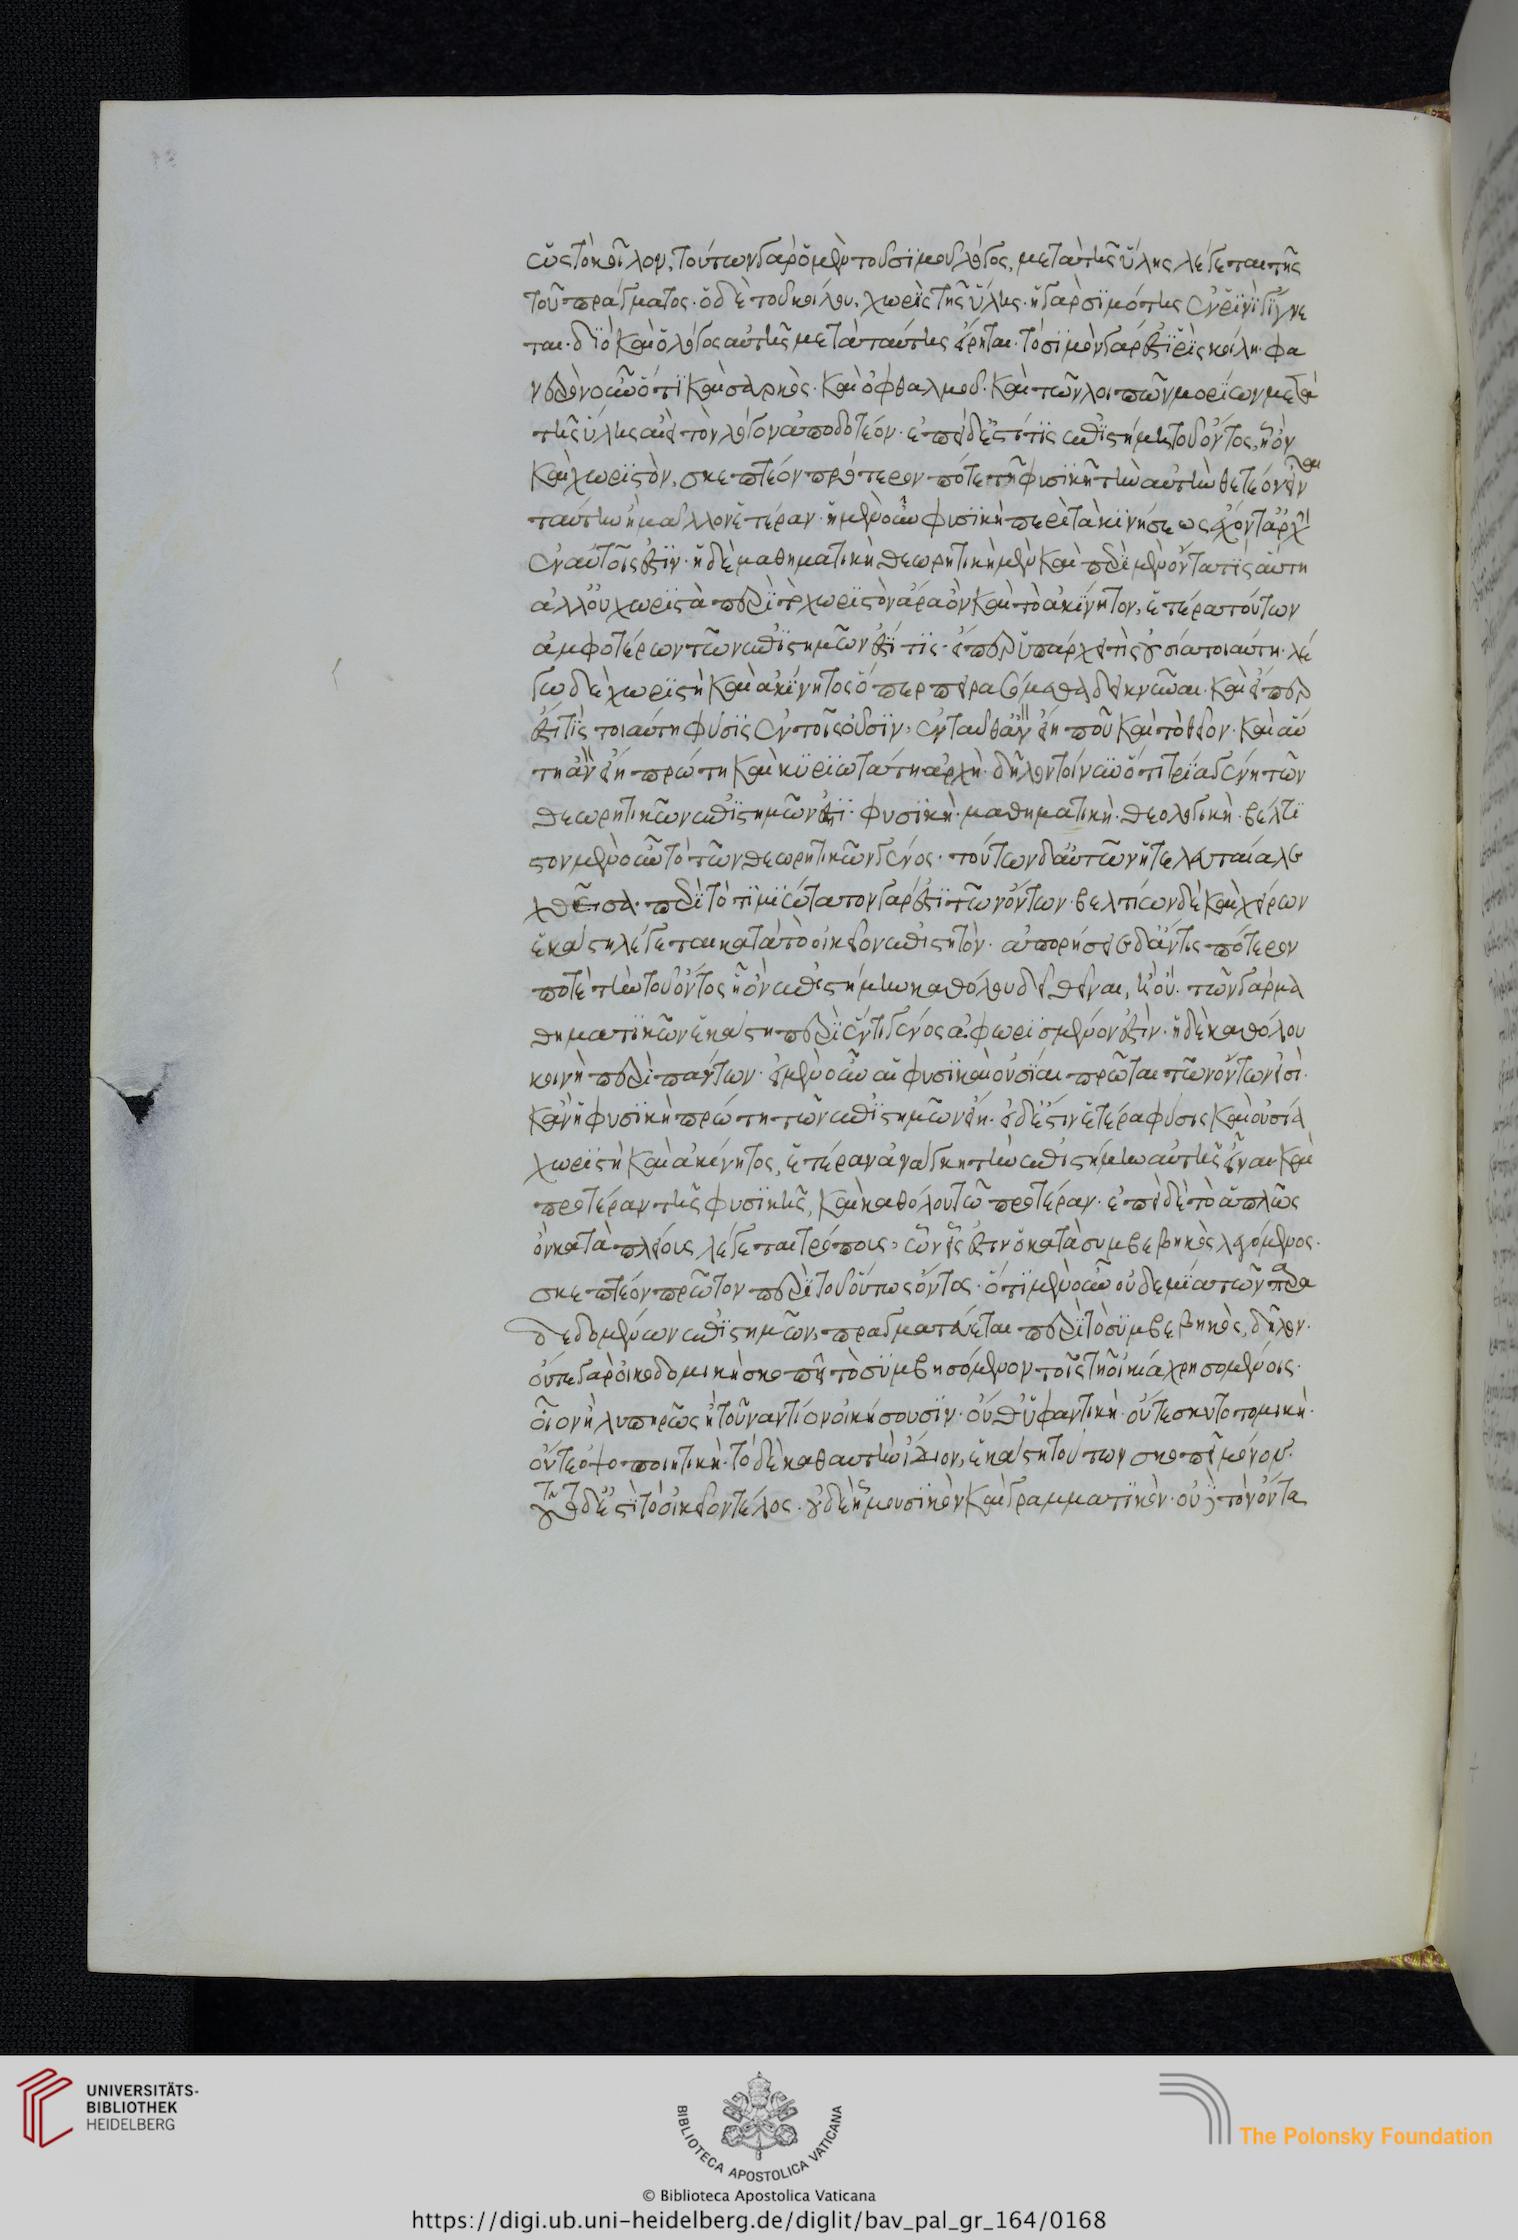 ὡς τὸ κοῖλον, τούτων γὰρ ὁ μὲν τοῦ σιμοῦ λόγος, μετὰ τῆς ὕλης λέγεται τῆς
τοῦ πράγματος· ὁ δὲ τοῦ κοίλου, χωρὶς τῆς ὕλης· ἡ γὰρ σιμότης ἐν ῥινὶ γίγνε
ται· διὸ καὶ ὁ λόγος αὐτῆς μετὰ ταύτης εἴρηται· τὸ σιμὸν γάρ ἐστι ῥὶς κοίλη· φα
νερὸν οὖν ὅτι καὶ σαρκὸς· καὶ ὀφθαλμοῦ· καὶ τῶν λοιπῶν μορίων μετὰ
τῆς ὕλης αἰεὶ τὸν λόγον ἀποδοτέον· ἐπεὶ δ' ἔστι τις ἐπιστήμη τοῦ ὄντος, ᾗ ὂν
καὶ χωριστὸν, σκεπτέον πρότερον πότε τῇ φυσικῇ τὴν αὐτὴν θετέον εἶναι
ταύτην ἢ μᾶλλον ἑτέραν· ἡ μὲν οὖν φυσικὴ περὶ τὰ κινήσεως ἔχοντα ἀρχὴ
ἐν αὑτοῖς ἐστὶν· ἡ δὲ μαθηματικὴ θεωρητικὴ μὲν καὶ περὶ μένοντά τις αὕτη
ἀλλ' οὐ χωριστὰ περὶ τὸ χωριστὸν ἄρα ὂν καὶ τὸ ἀκίνητον, ἑτέρα τούτων
ἀμφοτέρων τῶν ἐπιστημῶν ἐστί τις· εἴπερ ὑπάρχει τὶς οὐσία τοιαύτη· λέ
γω δὲ χωριστὴ καὶ ἀκίνητος ὅπερ πειρασόμεθα δεικνῦναι· καὶ εἴπερ
ἐστί τὶς τοιαύτη φύσις ἐν τοῖς οὖσιν, ἐνταῦθ' ἂν εἴη ποῦ καὶ τὸ θεῖον· καὶ αὕ
τη ἂν εἴη πρώτη καὶ κυριωτάτη ἀρχὴ· δῆλον τοίνυν ὅτι τρία γένη τῶν
θεωρητικῶν ἐπιστημῶν ἐστὶ· φυσικὴ· μαθηματικὴ· θεολογικὴ· βέλτι
στον μὲν οὖν τὸ τῶν θεωρητικῶν γένος· τούτων δ' αὐτῶν ἡ τελευταία λε
χθεῖσα· περὶ τὸ τιμιώτατον γάρ ἐστι τῶν ὄντων· βελτίων δὲ καὶ χείρων
ἑκάστη λέγεται κατὰ τὸ οἰκεῖον ἐπιστητὸν· ἀπορήσειε δ' ἄν τις πότερον
ποτὲ τὴν τοῦ ὄντος ᾗ ὂν ἐπιστήμην καθόλου δεῖ θεῖναι, ἢ οὔ· τῶν γὰρ μα
θηματικῶν ἑκάστη περὶ ἕν τι γένος ἀφωρισμένον ἐστὶν· ἡ δὲ καθόλου
κοινὴ περὶ πάντων· εἰ μὲν οὖν αἱ φυσικαὶ οὐσίαι πρῶται τῶν ὄντων εἰσὶ·
κἂν ἡ φυσικὴ πρώτη τῶν ἐπιστημῶν εἴη· εἰ δ' ἔστιν ἑτέρα φύσις καὶ οὐσία
χωριστὴ καὶ ἀκίνητος, ἑτέραν ἀνάγκη τὴν ἐπιστήμην αὐτῆς εἶναι καὶ
προτέραν τῆς φυσικῆς, καὶ καθόλου τῶ προτέραν· ἐπεὶ δὲ τὸ ἁπλῶς
ὂν κατὰ πλείους λέγεται τρόπους, ὧν εἷς ἐστιν ὁ κατὰ συμβεβηκὸς λεγόμενος·
σκεπτέον πρῶτον περὶ τοῦ οὕτως ὄντος· ὅτι μὲν οὖν οὐδεμία τῶν παρα
δεδομένων ἐπιστημῶν, πραγματεύεται περὶ τὸ συμβεβηκὸς, δῆλον·
οὔτε γὰρ οἰκοδομικὴ σκοπεῖ τὸ συμβησόμενον τοῖς τῇ οἰκία χρησομένοις·
οἷον ἢ λυπηρῶς ἢ τοὐναντίον οἰκήσουσιν· οὔθ' ὑφαντικὴ· οὔτε σκυτοτομικὴ·
οὔτε ὀψοποιητικὴ· τὸ δὲ καθ' αὑτὴν ἴδιον, ἑκάστη τούτων σκοπεῖ μόνον·
τοῦτο δ' ἐστὶ τὸ οἰκεῖον τέλος· οὐδὲ ᾗ μουσικὸν καὶ γραμματικὸν· οὐδὲ τὸν ὄντα
UNIVERSITÄTS-
BIBLIOTHEK
HEIDELBERG
BIBLIOTECA APOSTOLICA VATICANA
The Polonsky Foundation
© Biblioteca Apostolica Vaticana
https://digi.ub.uni-heidelberg.de/diglit/bav_pal_gr_164/0168